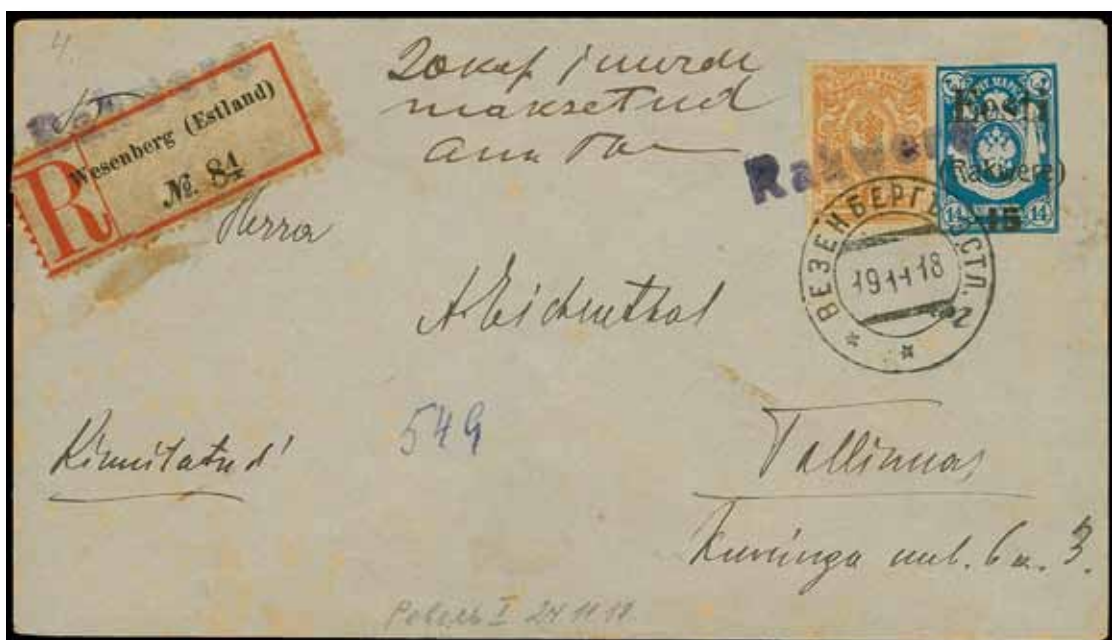 4.
Rakwere
Wesenberg (Estland)
R
№. 84
20 kap juurde
maksetud
Rakwere
Eesti
(Rakwere)
15
14 14
ВЕЗЕНБЕРГЪ ЭСТЛ.
19 11 18
Herra
A Eichenthal
549
Kinnitatud
Tallinnas
Kuninga uul. 6 k. 3.
Ревель I 24 11 18